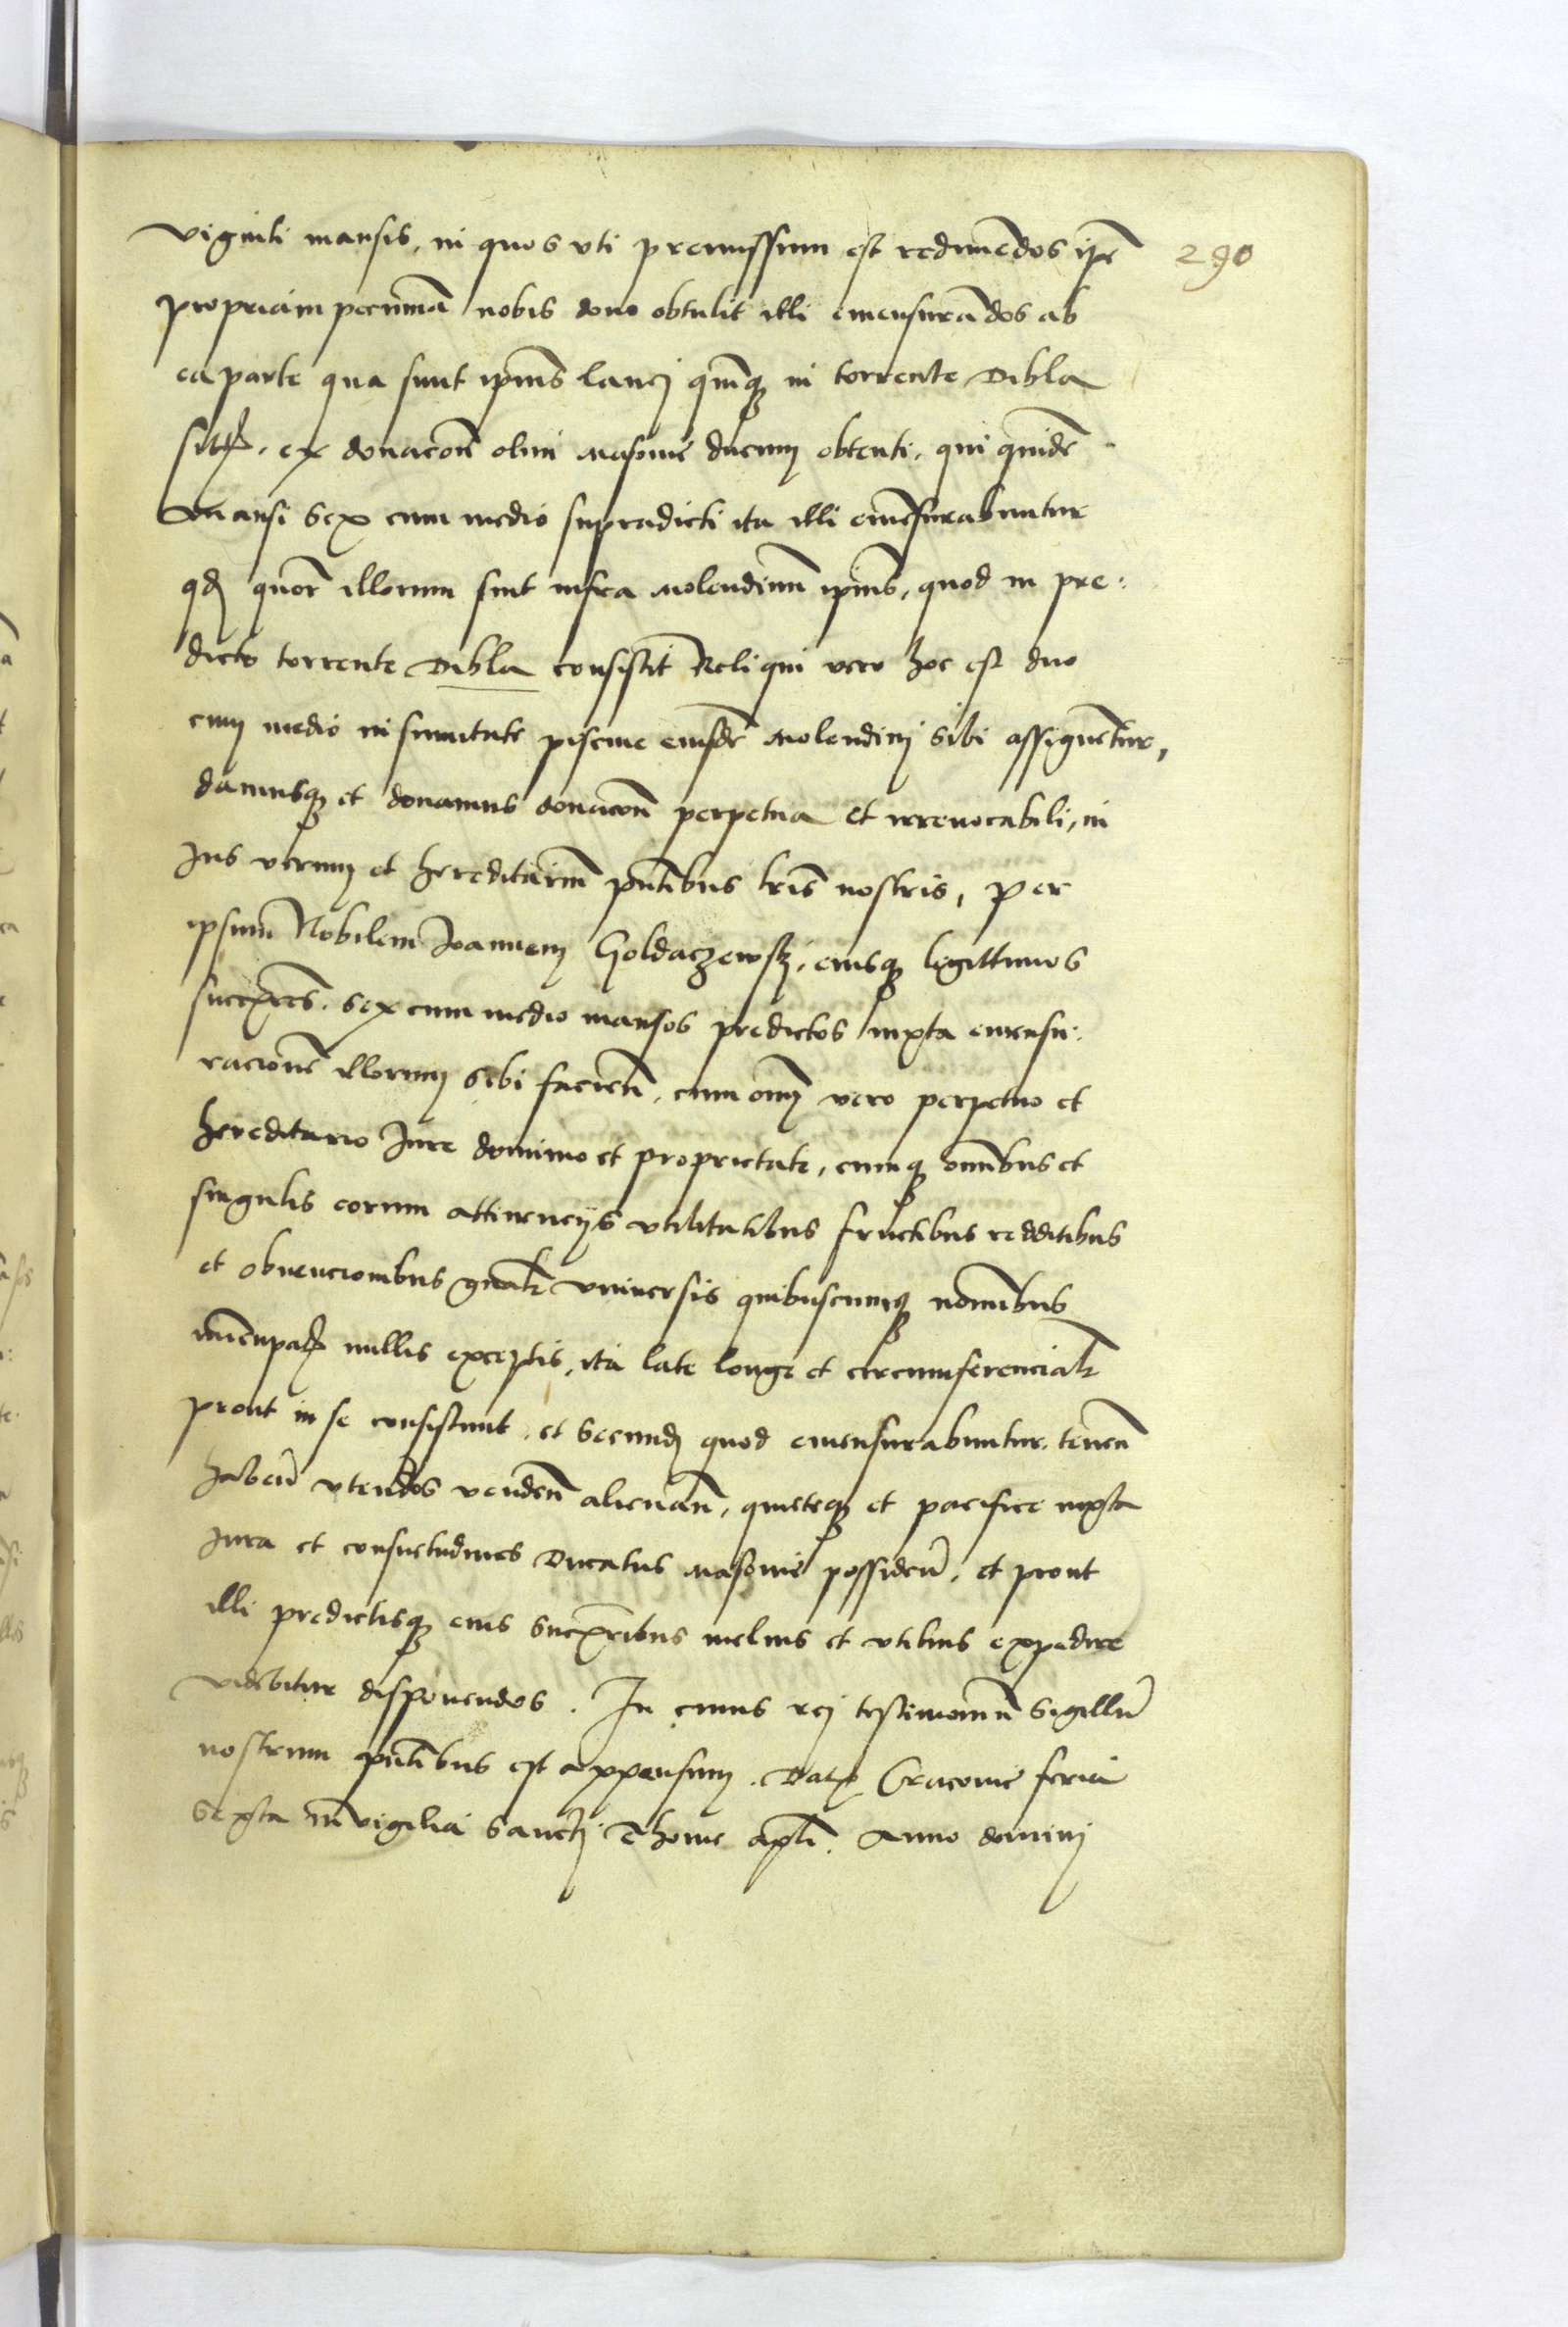 viginti mansis, in quos vti premissum est redimēdos ip̄e
290
propriam pecuniā nobis dono obtulit illi emensurādos ab
ea parte qua sunt ipīus lanej quīq in torrente Dibla
sitį. ex donacōē olim Masouie ducum obtenti. qui quidē
Mansi sex cum medio supradicti ita illi emēsurabuntur
qđ quor̄ illorum sint infra Molendinū ipīus, quod in pre:
dicto torrente Dibla consistit Reliqui vero hoc est duo
cum medio in sumitate piscine eiusdē Molendinj sibi assignētur,
damusq et donamus donacōē perpetua et irreuocabili, in
Jus verum et hereditariū pn̄tibus lrīs nostris, per
ipsum Nobilem Joannem Goldaczewskj, eiusq legittimos
succ̄ores. sex cum medio mansos predictos iuxta emensu:
racionē illorum sibi faciēn, cum om̄j vero perpetuo et
hereditario Jure dominio et proprietate, cumq om̄ibus et
singulis eorum attinencijs vtilitatibus fructibus redditibus
et obuencionibus gn̄alr vniuersis quibuscumq nominibus
nūcupatį nullis exceptis, ita late longe et circumferencialr
prout in se consistunt, et secundum quod emensurabuntur. tenen̄
haben̄ vtendos venden̄ alienan̄, quieteq et pacifice iuxta
Jura et consuetudines Ducatus Masouie possiden̄, et prout
illi predictisq eius succ̄oribus melius et vtilius expedire
videbitur disponendos. In cuius rej testimoniū Sigillū
nostrum pn̄tibus est appensum. Datį Cracouie feria
sexta in vigilia Sanctj Thome apl̄i. Anno dominj